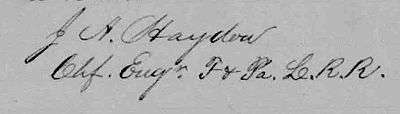 J A. Haydon
Chf. Engr. T & Pa. L. R. R.